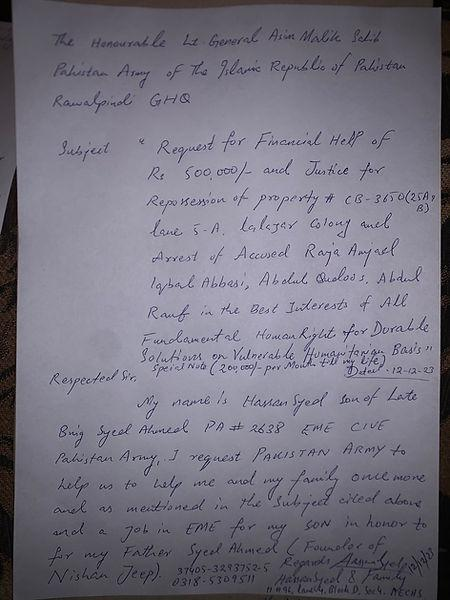 The Honourable Lt. General Asim Malik Sahib
Pakistan Army of The Islamic Republic of Pakistan
Rawalpindi GHQ
Subject " Request for Financial Help of
Rs 500,000/- and Justice for
Repossession of property # CB-3650 (25A,
B)
lane 5-A, Lalazar Colony and
Arrest of Accused Raja Amjad
Iqbal Abbasi, Abdul Qudoos, Abdul
Rauf in the Best Interests of All
Fundamental Human Right for Durable
Solutions on Vulnerable Humanitarian Basis"
Special Note (200,000/- per Month till my life)
Respected Sir, Dated. 12-12-23
My name is Hassan Syed son of Late
Brig Syed Ahmed PA # 2638 EME CIVE
Pakistan Army, I request PAKISTAN ARMY to
help us to help me and my family once more
and as mentioned in the Subject cited above
and a Job in EME for my son in honor to
for my Father Syed Ahmed (Founder of
Nishan Jeep). Regards
37405-3293752-5 Hassan Syed & Family 12/12/23
0318-5309511
Block D, Sect. NECHS